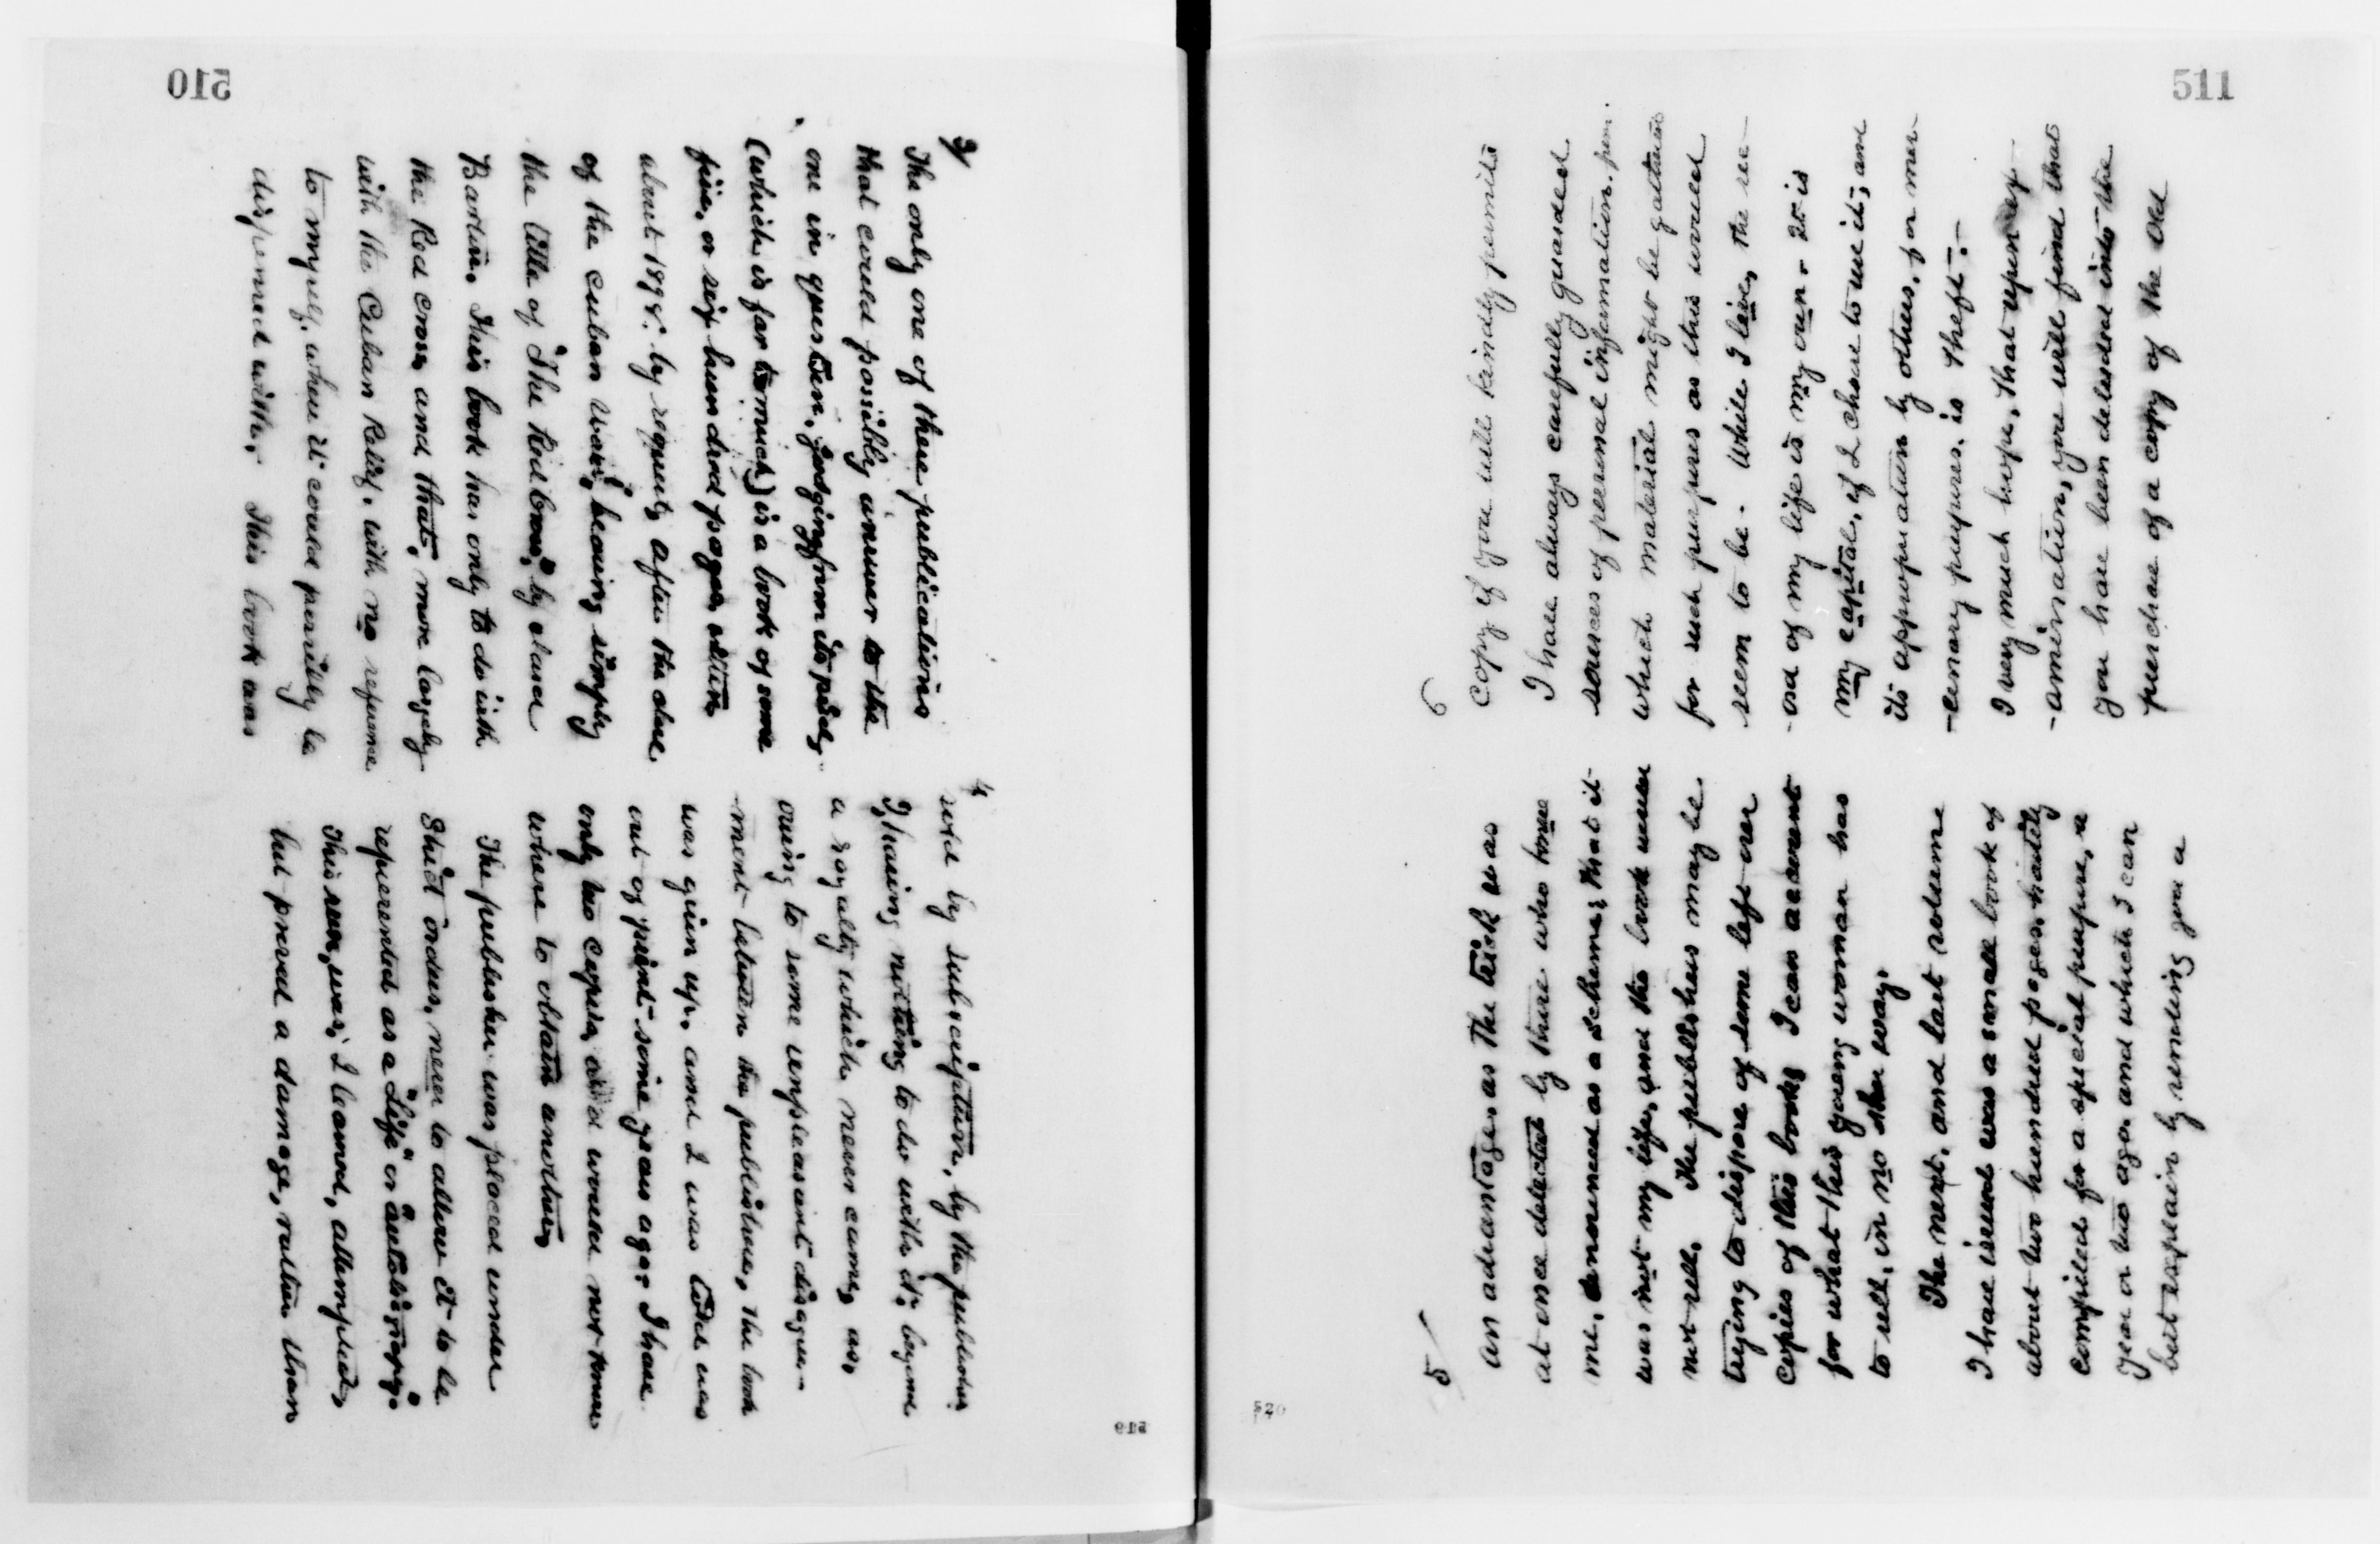 510
3/
The only one of these publications
that could possibly answer to the
one in question, judging from its price,
(which is far too much) is a book of some
five, or six hundred pages, written
about 1898. by request, after the close
of the Cuban War; bearing simply
the title of "The Red Cross", by Clara
Barton. This book has only to do with
the Red Cross, and that, more largely
with the Cuban Relief, with no reference
to myself, when it could possibly be
dispensed with. This book was
4
sold by subscription, by the publisher
I, having nothing to do with it; beyond
a royalty which never came, as,
owing to some unpleasant disagree-
ment between the publishers, the book
was given up, and I was told was
out of print some years ago. I have
only two copies, and would not know
where to obtain another,
The publisher was placed under
Strict orders, never to allow it to be
represented as a "Life" or "autobiography".
This was, I learned, attempted,
but proved a damage, rather than
519
511
5
an advantage, as the trick was
at once detected by those who knew
me, denounced as a scheme; that it
was not my life, and the book would
not sell. The publishers may be
trying to dispose of some left over
copies of this book; I can account
for what this young woman has
to sell, in no other way.
The next, and last volume
I have issued was a small book of
about two hundred pages, hastily
compiled for a special purpose, a
year or two ago, and which I can
best explain by sending you a
6
copy if you will kindly permit
I have always carefully guarded
sources of personal information from
which material might be gathered
for such purposes as this would
seem to be. While I live, the rec-
-ord of my life is my own. It is
my capital, if I choose to use it, and
its appropriation by others, for mer-
-cenary purposes, is theft.-
I very much hope, that upon ex-
-amination, you will find that
you have been deluded into the
purchase of a copy of the old
520